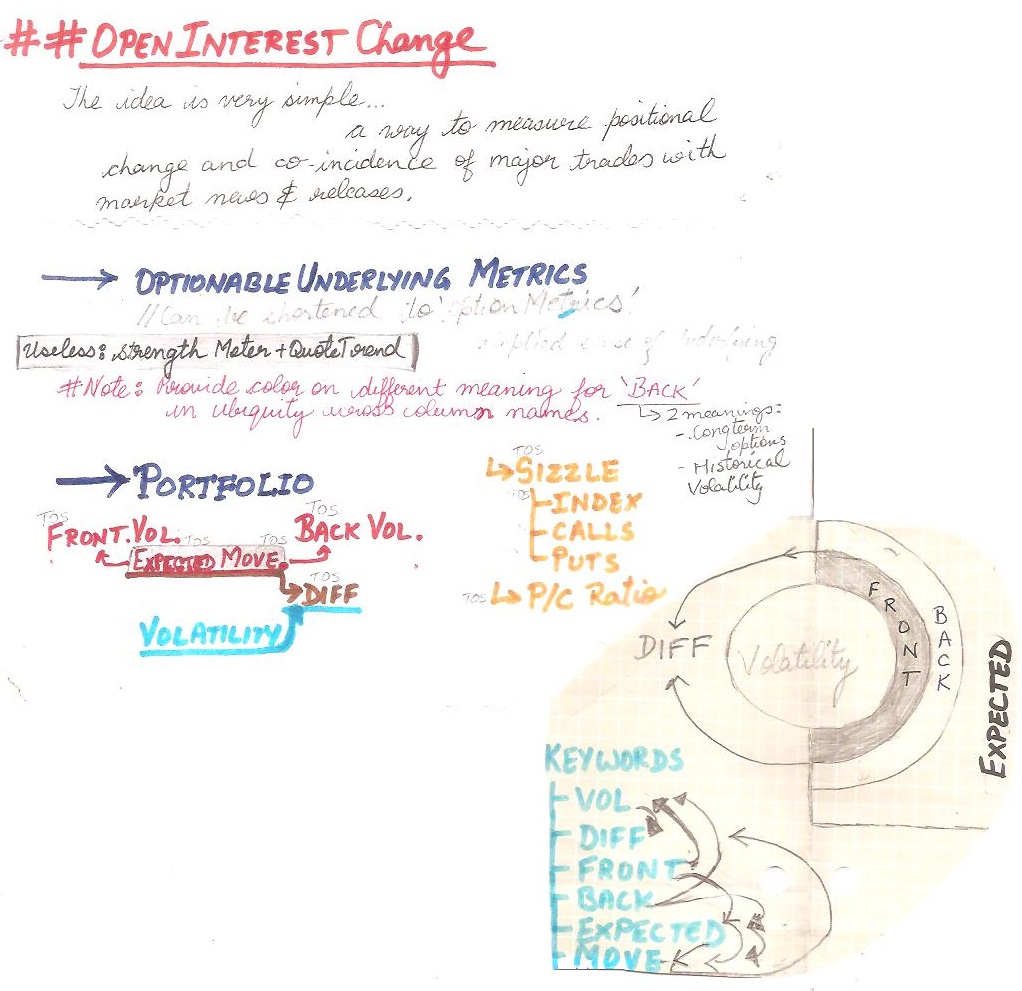 ## OPEN INTEREST Change
The idea is very simple...
a way to measure positional
change and co-incidence of major trades with
market news & releases.
→ OPTIONABLE UNDERLYING METRICS
// Can be shortened to 'option Metrics'
Useless: Strength Meter + Quote Trend
implied of Underlying
#Note: Provide color on different meaning for 'BACK'
in ubiquity across column names.
↳ 2 meanings:
- Longterm options
- Historical Volatility
→ PORTFOLIO
TOS
FRONT.VOL.
TOS
BACK VOL.
TOS TOS
EXPECTED MOVE.
TOS
DIFF
VOLATILITY
TOS
↳ SIZZLE
TOS
INDEX
CALLS
PUTS
TOS ↳ P/C Ratio
DIFF
Volatility
FRONT
BACK
EXPECTED
KEYWORDS
VOL
DIFF
FRONT
BACK
EXPECTED
MOVE